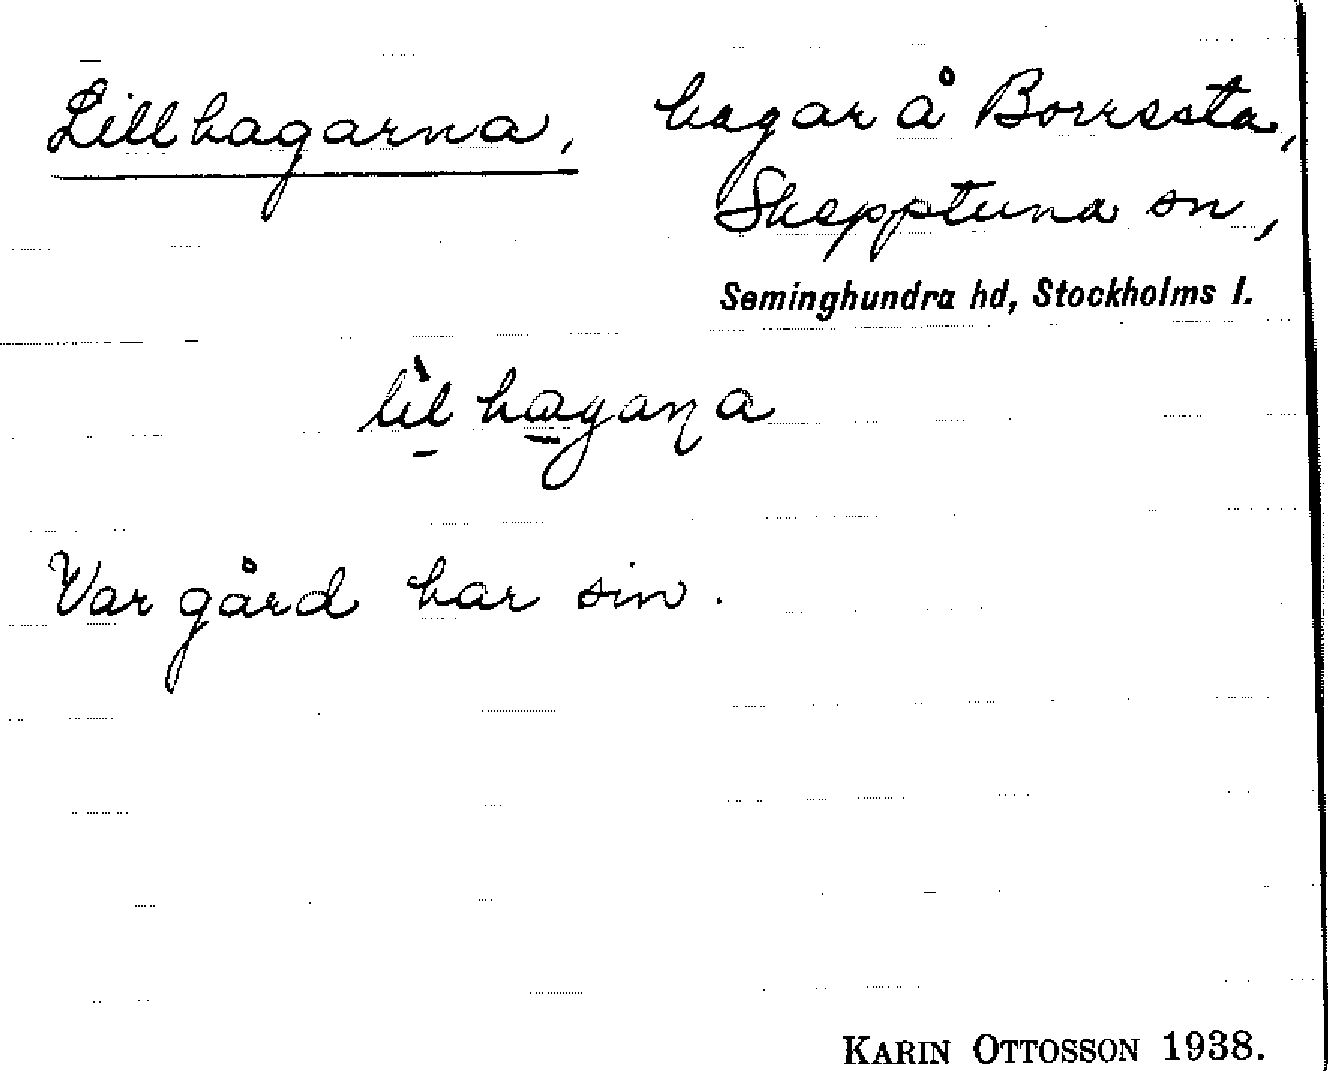 Lillhagarna, hagar å Borresta,
Skepptuna sn,
Seminghundra hd, Stockholms l.
lìl hagaṇa
Var gård har sin.
KARIN OTTOSSON 1938.